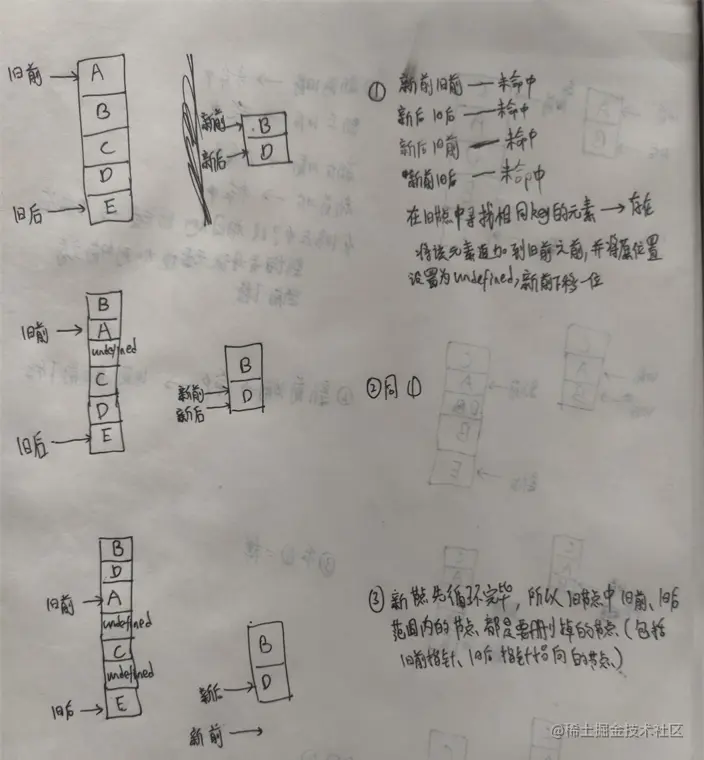 旧前
A
B
C
D
E
旧后
新前
新后
B
D
① 新前旧前 — 未命中
新后旧后 — 未命中
新后旧前 — 未命中
新前旧后 — 未命中
在旧节点中寻找相同key的元素 → 存在
将该元素追加到旧前之前,并将原位置
设置为undefined,新前下移一位
B
旧前
A
undefined
C
D
旧后
E
B
新前
D
新后
②同①
B
D
旧前
A
undefined
C
undefined
旧后
E
B
新后
D
新前
③ 新节点先循环完毕,所以旧节点中旧前、旧后
范围内的节点都是要删掉的节点(包括
旧前指针、旧后指针指向的节点)
@稀土掘金技术社区